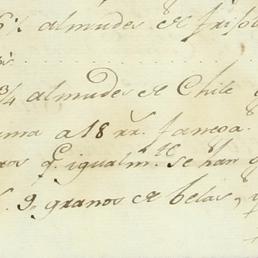 6½ almudes de frisol
¾ almudes de Chile
a 18 rr. fanega
q.e igualm.te se han
9. granos de belas, y